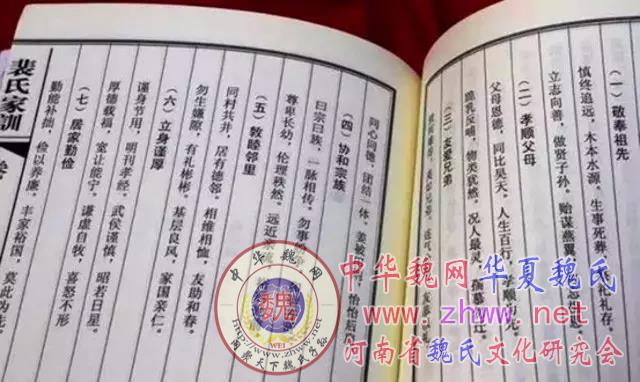 (一)敬奉祖先
慎终追远，木本水源。生事死葬，礼存。
立志向善，做贤子孙。贻谋燕翼，
(二)孝顺父母
父母恩德，同比昊天。人生百行，孝顺
跪乳反哺，物类犹然。况人最灵，孺慕
(三)友爱兄弟
同心同德，团结一体。姜被 怡怡后
(四)协和宗族
曰宗曰族，一脉相传。勿事
尊卑长幼，伦理秩然。远近亲
(五)敦睦邻里
同村共井，居有德邻。相维相恤，友助和春。
勿生嫌隙，有礼彬彬。基层良风，家国亲仁。
(六)立身谨厚
谨身节用，明刊孝经。武侯谨慎，昭若日星。
厚德载福，宽让能宁。谦虚自牧，喜怒不形
(七)居家勤俭
勤能补拙，俭以养廉。丰家裕国，莫此为先。
裴氏家訓
中华魏网
魏
WEI
http://www.zhww.net
陶聚天下魏氏子孙
中华魏网华夏魏氏
www.zhww.net
河南省魏氏文化研究会